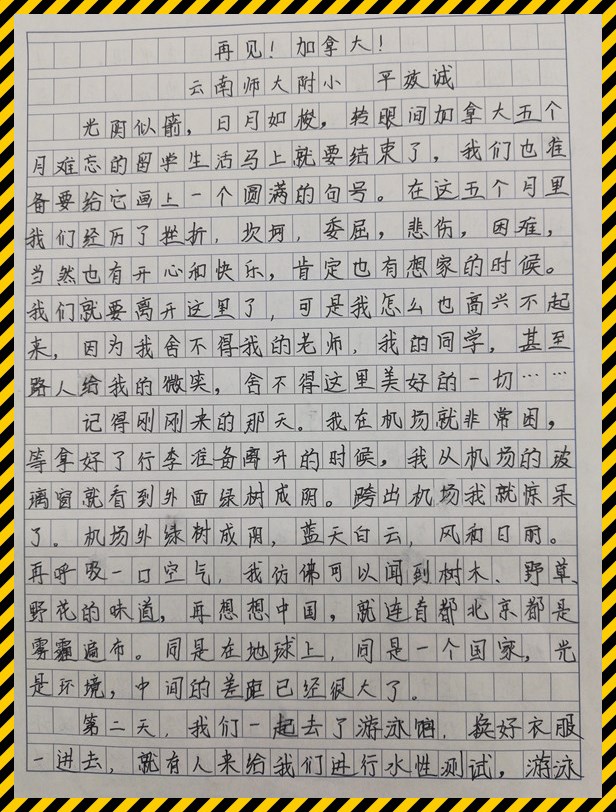 再见！加拿大！
云南师大附小 平兹诚
光阴似箭，日月如梭，转眼间加拿大五个
月难忘的留学生活马上就要结束了，我们也准
备要给它画上一个圆满的句号。在这五个月里
我们经历了挫折，坎坷，委屈，悲伤，困难，
当然也有开心和快乐，肯定也有想家的时候。
我们就要离开这里了，可是我怎么也高兴不起
来，因为我舍不得我的老师，我的同学，甚至
路人给我的微笑，舍不得这里美好的一切……
记得刚刚来的那天。我在机场就非常困，
等拿好了行李准备离开的时候，我从机场的玻
璃窗就看到外面绿树成阴。跨出机场我就惊呆
了。机场外绿树成阴，蓝天白云，风和日丽。
再呼吸一口空气，我仿佛可以闻到树木、野草、
野花的味道，再想想中国，就连首都北京都是
雾霾遍布。同是在地球上，同是一个国家，光
是环境，中间的差距已经很大了。
第二天，我们一起去了游泳馆，换好衣服
一进去，就有人来给我们进行水性测试，游泳